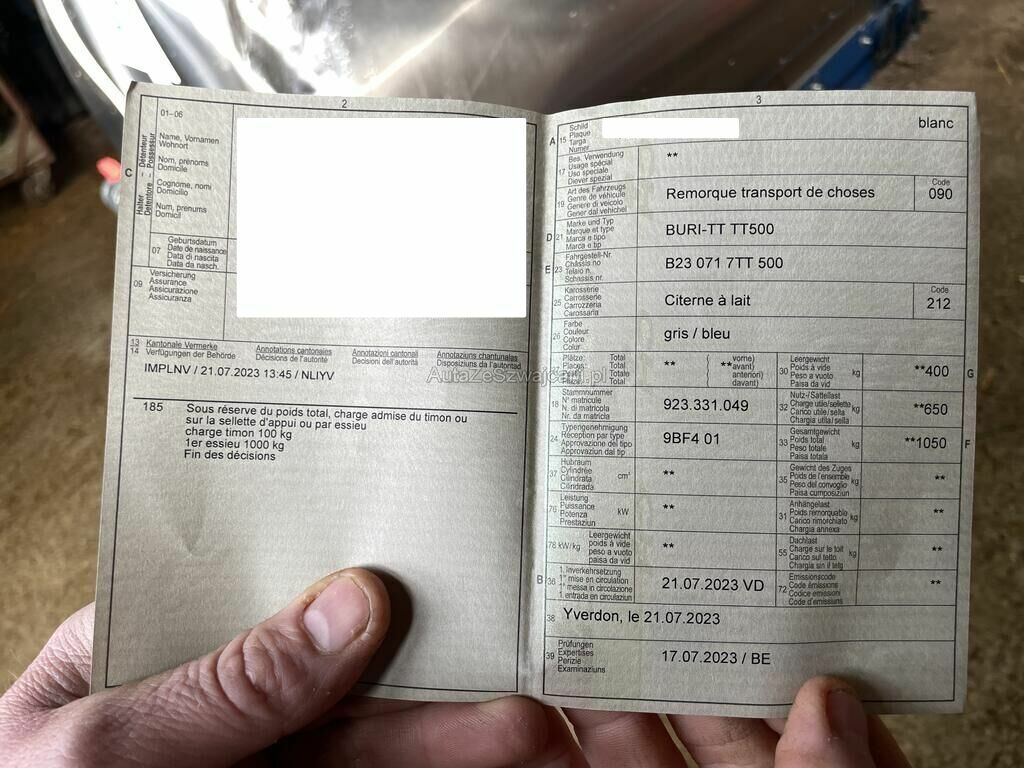 2
01–06
Halter – Détenteur
Detentore – Possessur
C
Name, Vornamen
Wohnort
Nom, prénoms
Domicile
Cognome, nomi
Domicilio
Num, prenums
Domicil
07
Geburtsdatum
Date de naissance
Data di nascita
Data da nasch.
09
Versicherung
Assurance
Assicurazione
Assicuranza
13
14
Kantonale Vermerke
Verfügungen der Behörde
Annotations cantonales
Décisions de l'autorité
Annotazioni cantonali
Decisioni dell'autorità
Annotaziuns chantunalas
Disposiziuns da l'autoritad
IMPLNV / 21.07.2023 13:45 / NLIYV
185 Sous réserve du poids total, charge admise du timon ou
sur la sellette d'appui ou par essieu
charge timon 100 kg
1er essieu 1000 kg
Fin des décisions
3
A 15 Schild
Plaque
Targa
Numer
blanc
17 Bes. Verwendung
Usage spécial
Uso speciale
Diever spezial
**
19 Art des Fahrzeugs
Genre de véhicule
Genere di veicolo
Gener dal vehichel
Remorque transport de choses
Code
090
D 21 Marke und Typ
Marque et type
Marca e tipo
Marca e tip
BURI-TT TT500
E 23 Fahrgestell-Nr.
Châssis no
Telaio n.
Schassis nr.
B23 071 7TT 500
25 Karosserie
Carrosserie
Carrozzeria
Carossaria
Citerne à lait
Code
212
26 Farbe
Couleur
Colore
Colur
gris / bleu
Plätze: Total
Places: Total
Total
Total
**
( vorne)
**avant)
anteriori)
davant)
30 Leergewicht
Poids à vide
Peso a vuoto
Paisa da vid
kg
**400
G
18 Stammnummer
N° matricule
N. di matricola
Nr. da matricla
923.331.049
32 Nutz-/Sattellast
Charge utile/sellette
Carico utile/sella
Chargia utila/sella
kg
**650
24 Typengenehmigung
Réception par type
Approvazione del tipo
Approvaziun dal tip
9BF4 01
33 Gesamtgewicht
Poids total
Peso totale
Paisa totala
kg
**1050
F
37 Hubraum
Cylindrée
Cilindrata
Cilindrada
cm³
**
35 Gewicht des Zuges
Poids de l'ensemble
Peso del convoglio
Paisa cumposiziun
kg
**
76 Leistung
Puissance
Potenza
Prestaziun
kW
**
31 Anhängelast
Poids remorquable
Carico rimorchiato
Chargia annexa
kg
**
78 kW/kg Leergewicht
poids à vide
peso a vuoto
paisa da vid
**
55 Dachlast
Charge sur le toit
Carico sul tetto
Chargia sin il tetg
kg
**
B 36 1. Inverkehrsetzung
1re mise en circulation
1a messa in circolazione
1. entrada en circulaziun
21.07.2023 VD
72 Emissionscode
Code émissions
Codice emissioni
Code d'emissiuns
**
38 Yverdon, le 21.07.2023
39 Prüfungen
Expertises
Perizie
Examinaziuns
17.07.2023 / BE
AutaZeSzwajcarii.pl